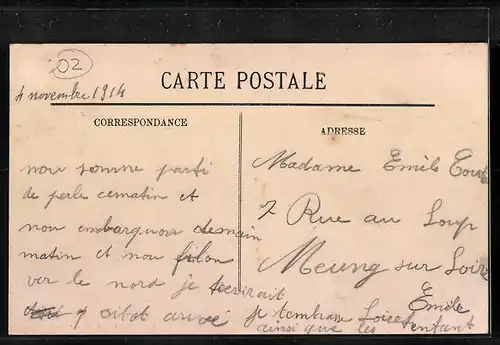 02
4 novembre 1914
CARTE POSTALE
CORRESPONDANCE
ADRESSE
nou somme parti
de perle cematin et
nou embarquon demain
matin et nou filon
ver le nord je tecrirait
sitot arivé
Madame Emile
7 Rue au Loup
Meung sur Loire
Loiret
Emile
je tembrasse
ainsi que les enfant